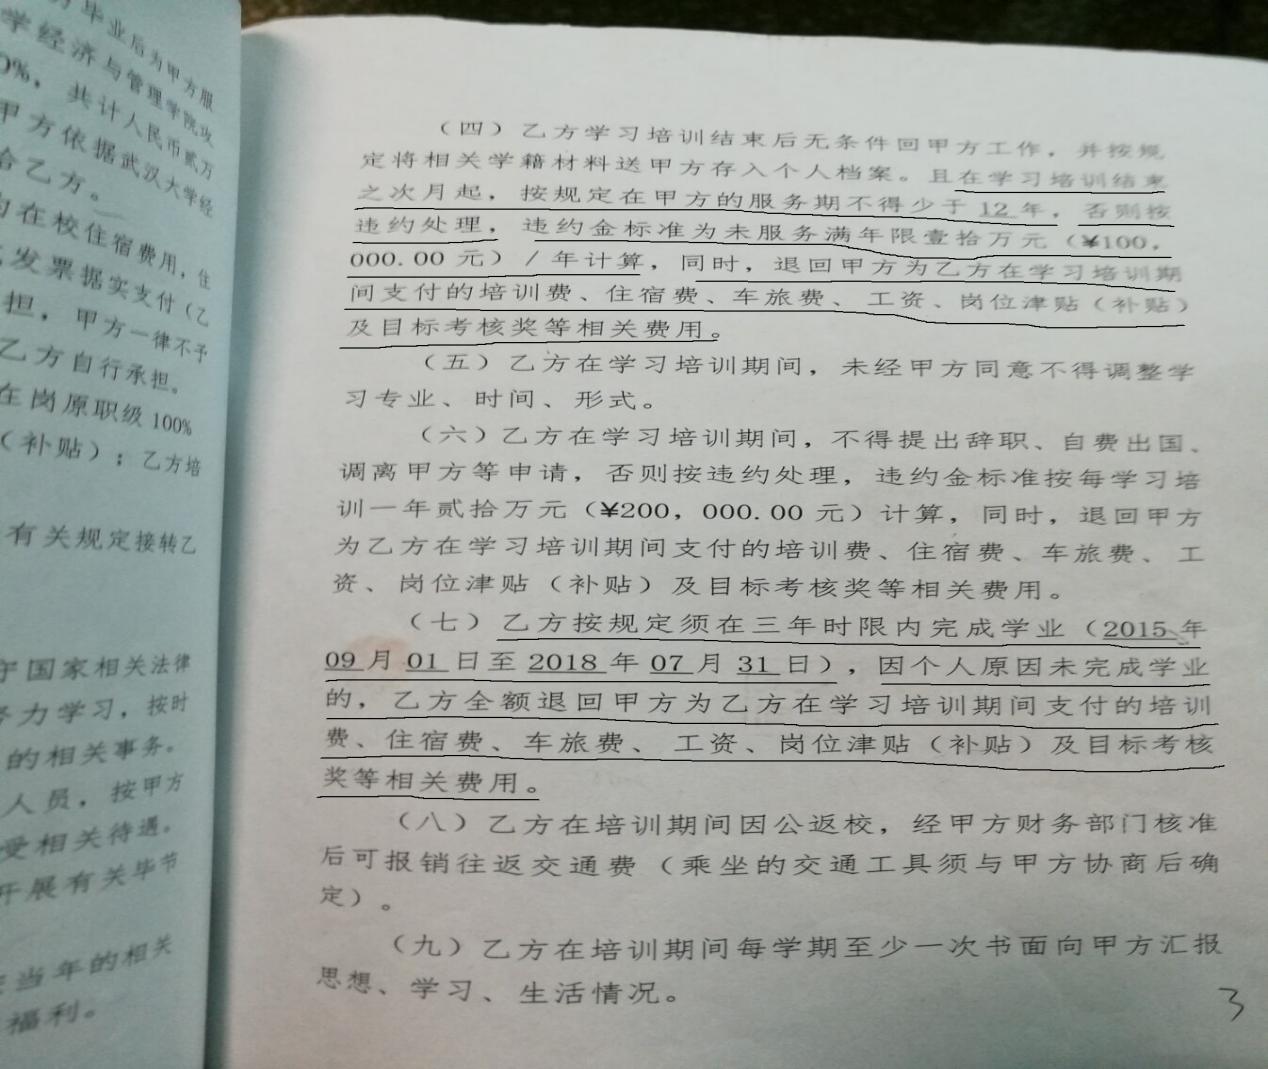 毕业后为甲方服
学经济与管理学院攻
0%，共计人民币贰万
甲方依据武汉大学经
给乙方。
在校住宿费用，住
发票据实支付（乙
担，甲方一律不予
乙方自行承担。
在岗原职级100%
（补贴）；乙方培
有关规定接转乙
守国家相关法律
努力学习，按时
的相关事务。
人员，按甲方
受相关待遇。
开展有关毕节
当年的相关
福利。
（四）乙方学习培训结束后无条件回甲方工作，并按规
定将相关学籍材料送甲方存入个人档案。且在学习培训结束
之次月起，按规定在甲方的服务期不得少于 12 年，否则按
违约处理，违约金标准为未服务满年限壹拾万元（¥100，
000.00 元）/年计算，同时，退回甲方为乙方在学习培训期
间支付的培训费、住宿费、车旅费、工资、岗位津贴（补贴）
及目标考核奖等相关费用。
（五）乙方在学习培训期间，未经甲方同意不得调整学
习专业、时间、形式。
（六）乙方在学习培训期间，不得提出辞职、自费出国、
调离甲方等申请，否则按违约处理，违约金标准按每学习培
训一年贰拾万元（¥200，000.00 元）计算，同时，退回甲方
为乙方在学习培训期间支付的培训费、住宿费、车旅费、工
资、岗位津贴（补贴）及目标考核奖等相关费用。
（七）乙方按规定须在三年时限内完成学业（2015 年
09 月 01 日至 2018 年 07 月 31 日），因个人原因未完成学业
的，乙方全额退回甲方为乙方在学习培训期间支付的培训
费、住宿费、车旅费、工资、岗位津贴（补贴）及目标考核
奖等相关费用。
（八）乙方在培训期间因公返校，经甲方财务部门核准
后可报销往返交通费（乘坐的交通工具须与甲方协商后确
定）。
（九）乙方在培训期间每学期至少一次书面向甲方汇报
思想、学习、生活情况。
3